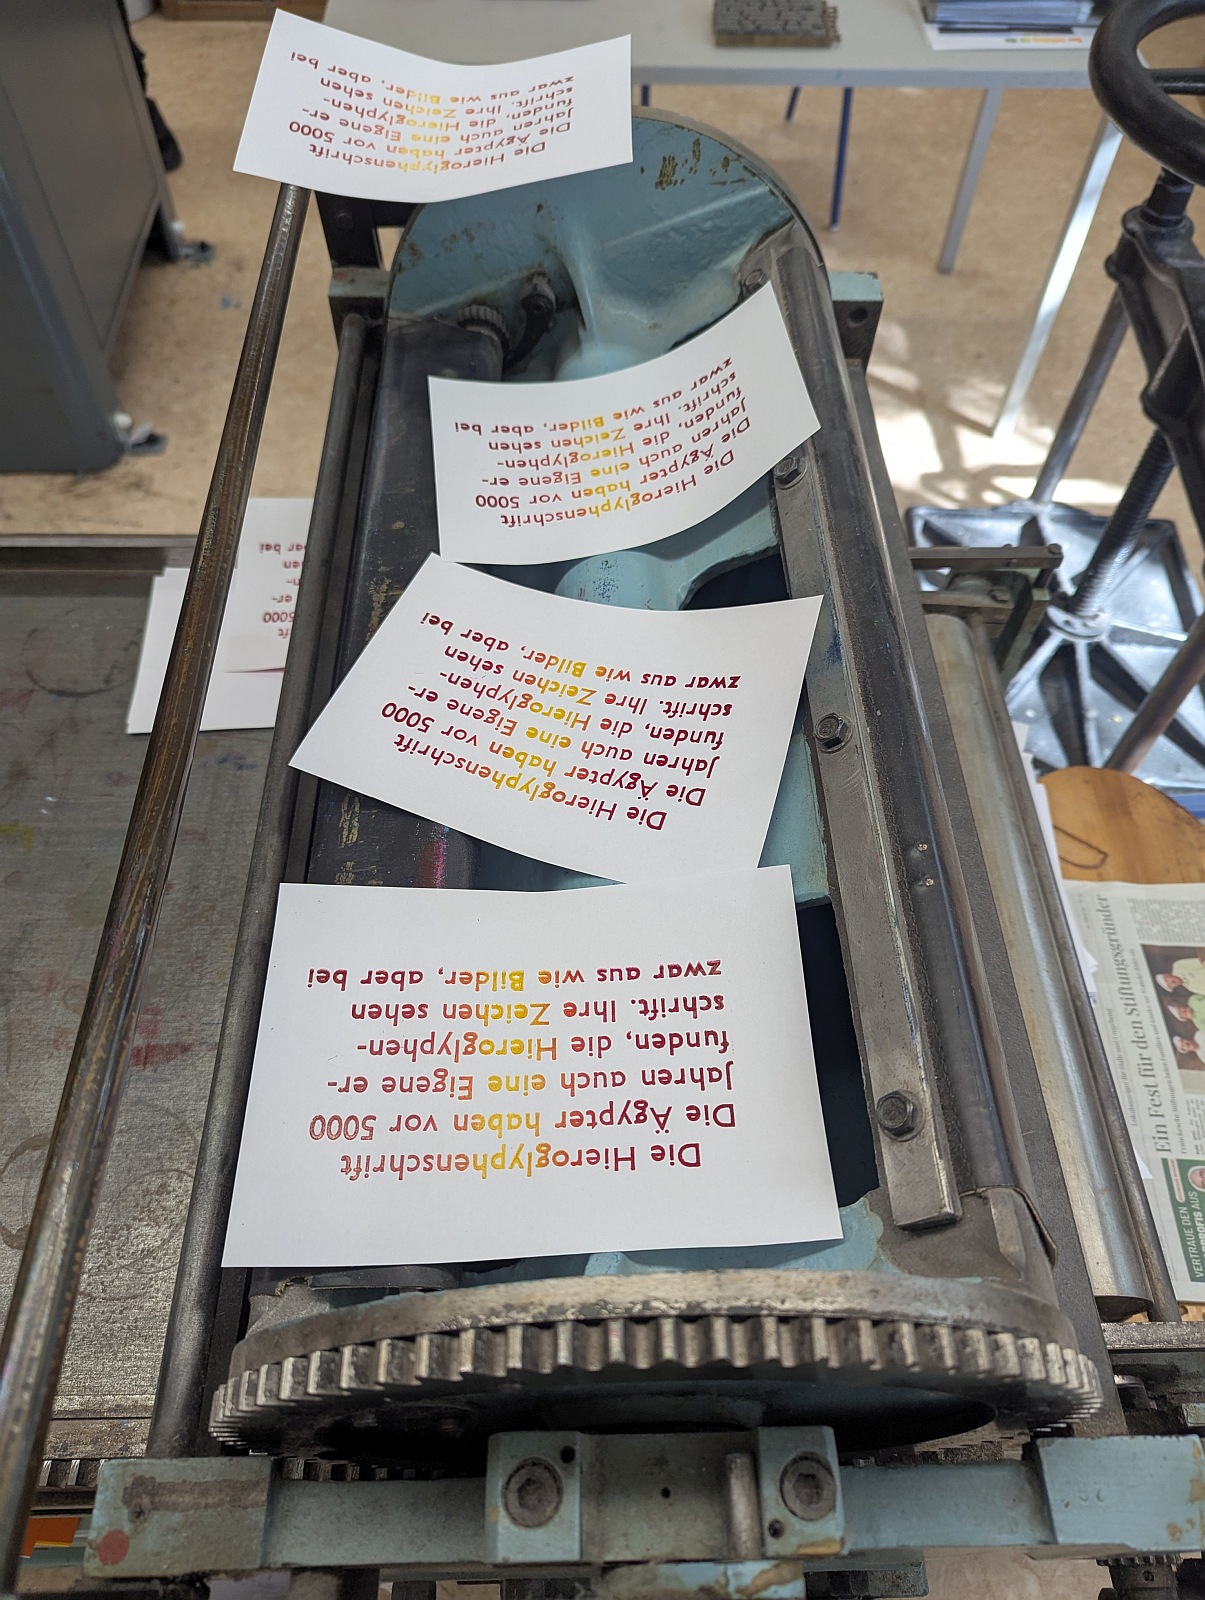 Die Hieroglyphenschrift
Die Ägypter haben vor 5000
Jahren auch eine Eigene er-
funden, die Hieroglyphen-
schrift. Ihre Zeichen sehen
zwar aus wie Bilder, aber bei
Die Hieroglyphenschrift
Die Ägypter haben vor 5000
Jahren auch eine Eigene er-
funden, die Hieroglyphen-
schrift. Ihre Zeichen sehen
zwar aus wie Bilder, aber bei
Die Hieroglyphenschrift
Die Ägypter haben vor 5000
Jahren auch eine Eigene er-
funden, die Hieroglyphen-
schrift. Ihre Zeichen sehen
zwar aus wie Bilder, aber bei
Die Hieroglyphenschrift
Die Ägypter haben vor 5000
Jahren auch eine Eigene er-
funden, die Hieroglyphen-
schrift. Ihre Zeichen sehen
zwar aus wie Bilder, aber bei
ft
5000
er-
n-
en
bar bei
Ein Fest für den Stiftungsgründer
VERTRAUE DEN
PROFIS AUS